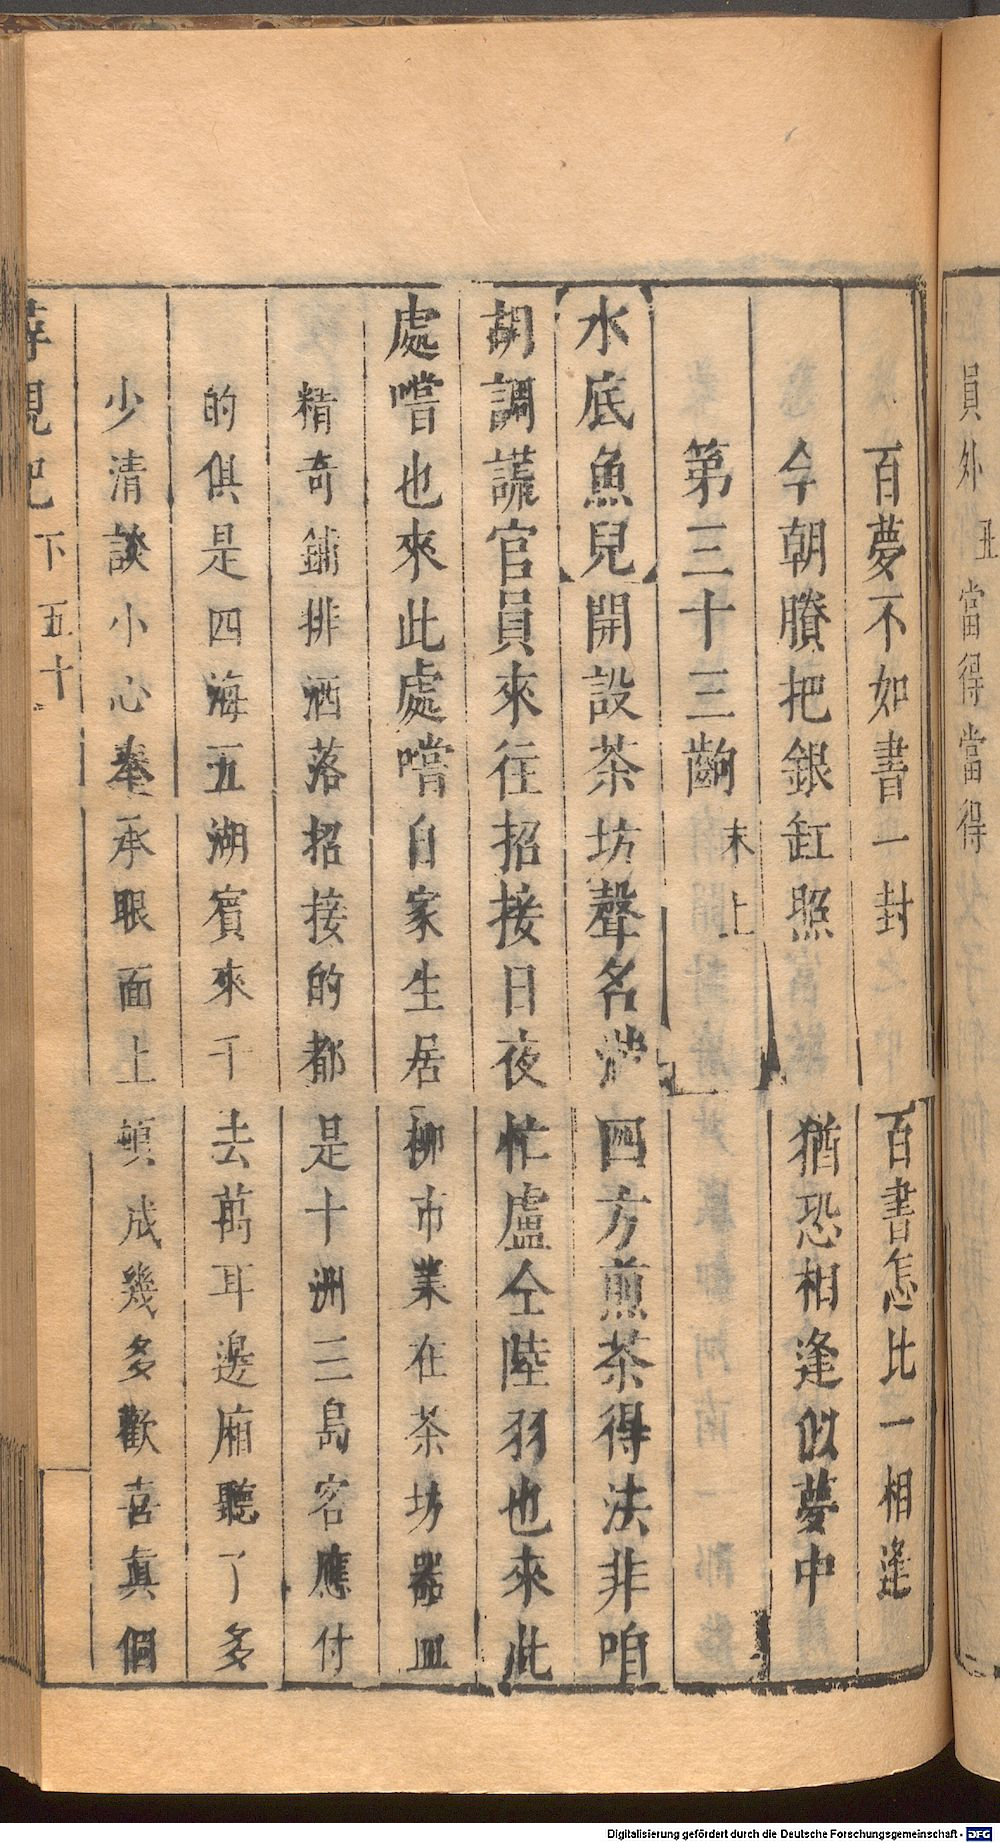 員外
丑
當得當得
百夢不如書一封　百書怎比一相逢
今朝賸把銀缸照　猶恐相逢似夢中
第三十三齣
末上
水底魚兒開設茶坊聲名滿四方煎茶得法非咱
胡調謊官員來往招接日夜忙盧仝陸羽也來此
處嚐也來此處嚐自家生居柳市業在茶坊器皿
精奇鋪排洒落招接的都是十洲三島客應付
的俱是四海五湖賓來千去萬耳邊廂聽了多
少清談小心奉承眼面上頓成幾多歡喜真個
尋親記
下
五十
Digitalisierung gefördert durch die Deutsche Forschungsgemeinschaft - DFG